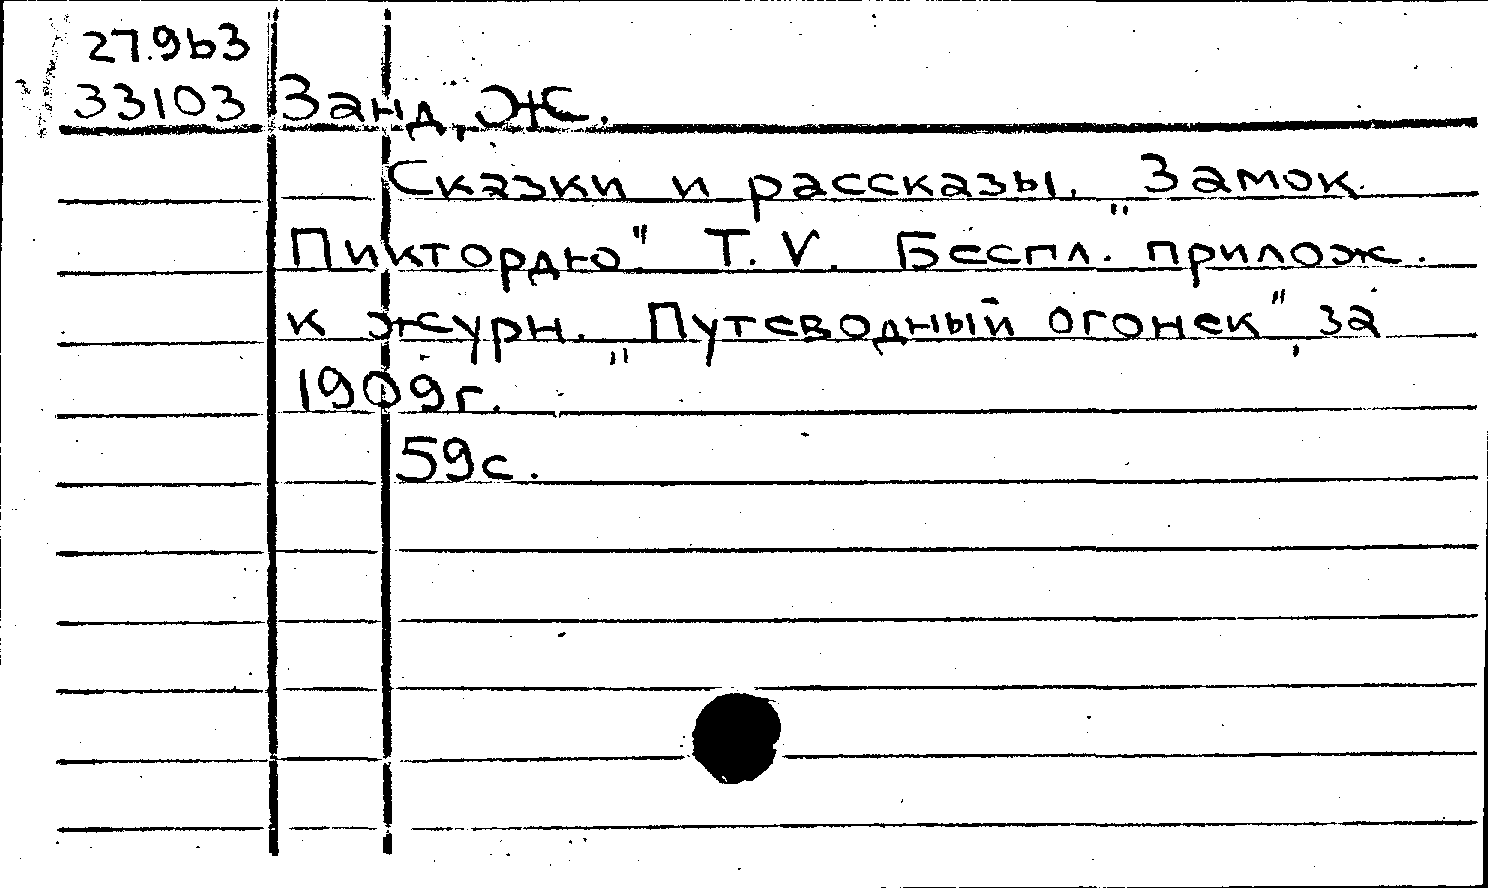 27.9b3
33103 Занд, Ж.
Сказки и рассказы. „Замок
Пиктордю" Т. V. Беспл. прилож.
к журн. „Путеводный огонек", за
1909г.
59с.